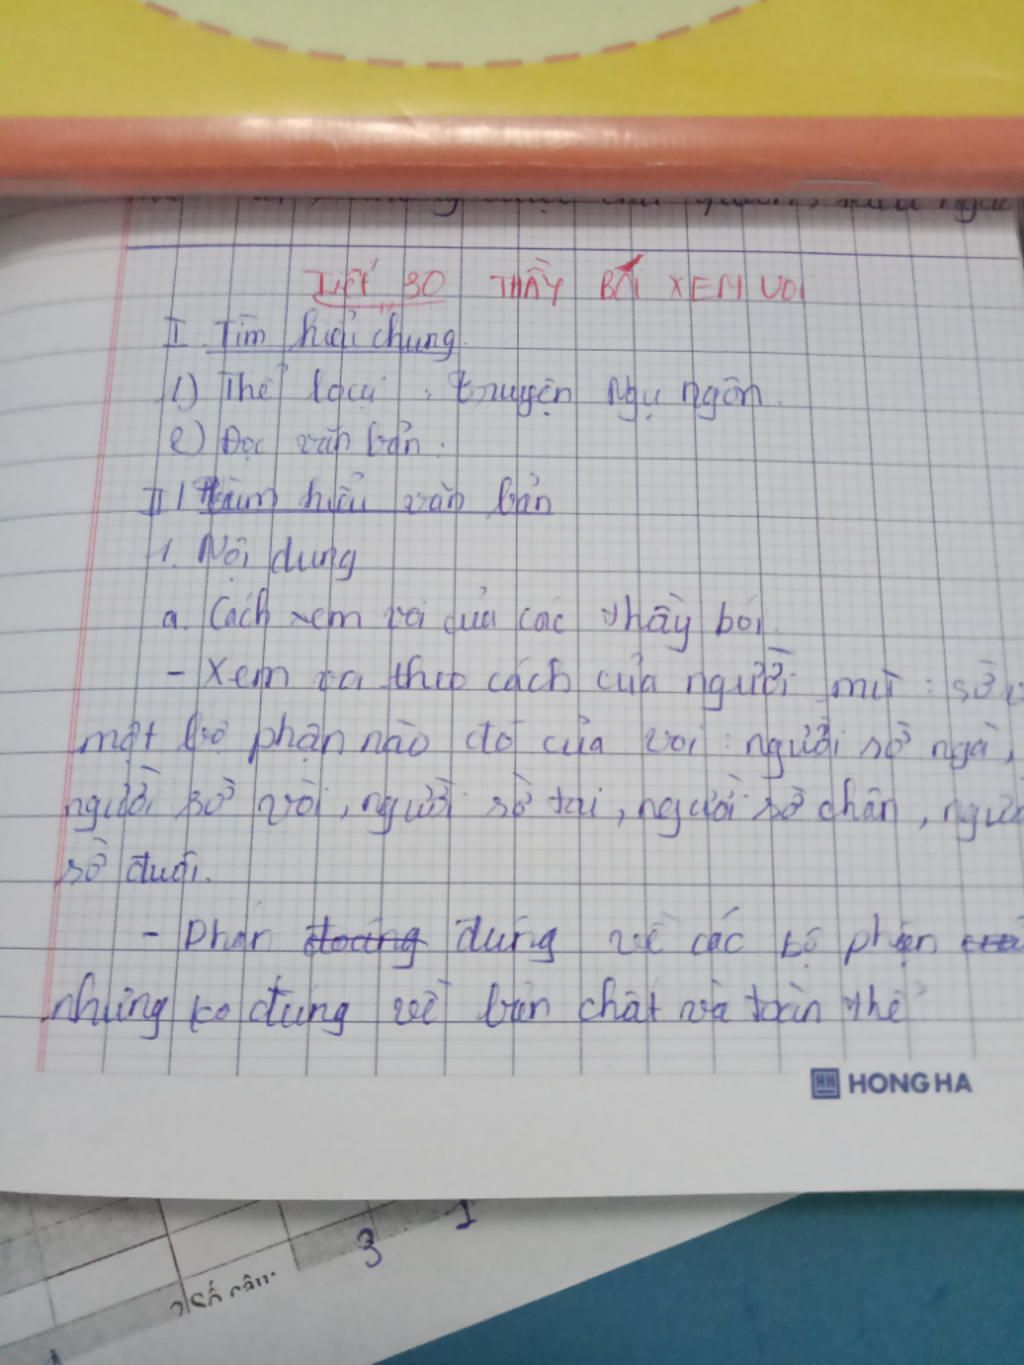 Tiết 30 THẦY BÓI XEM VOI
I. Tìm hiểu chung
1) Thể loại : truyện Ngụ ngôn
2) Đọc văn bản.
II / Tìm hiểu văn bản
1. Nội dung
a. Cách xem voi của các thầy bói
- Xem voi theo cách của người mù : sờ
một bộ phận nào đó của voi : người sờ ngà,
người sờ vòi, người sờ tai, người sờ chân, người
sờ đuôi.
- Phán đoáng đúng về các bộ phận
nhưng ko đúng về bản chất và toàn thể
HONG HA
3 1
2 Số câu: